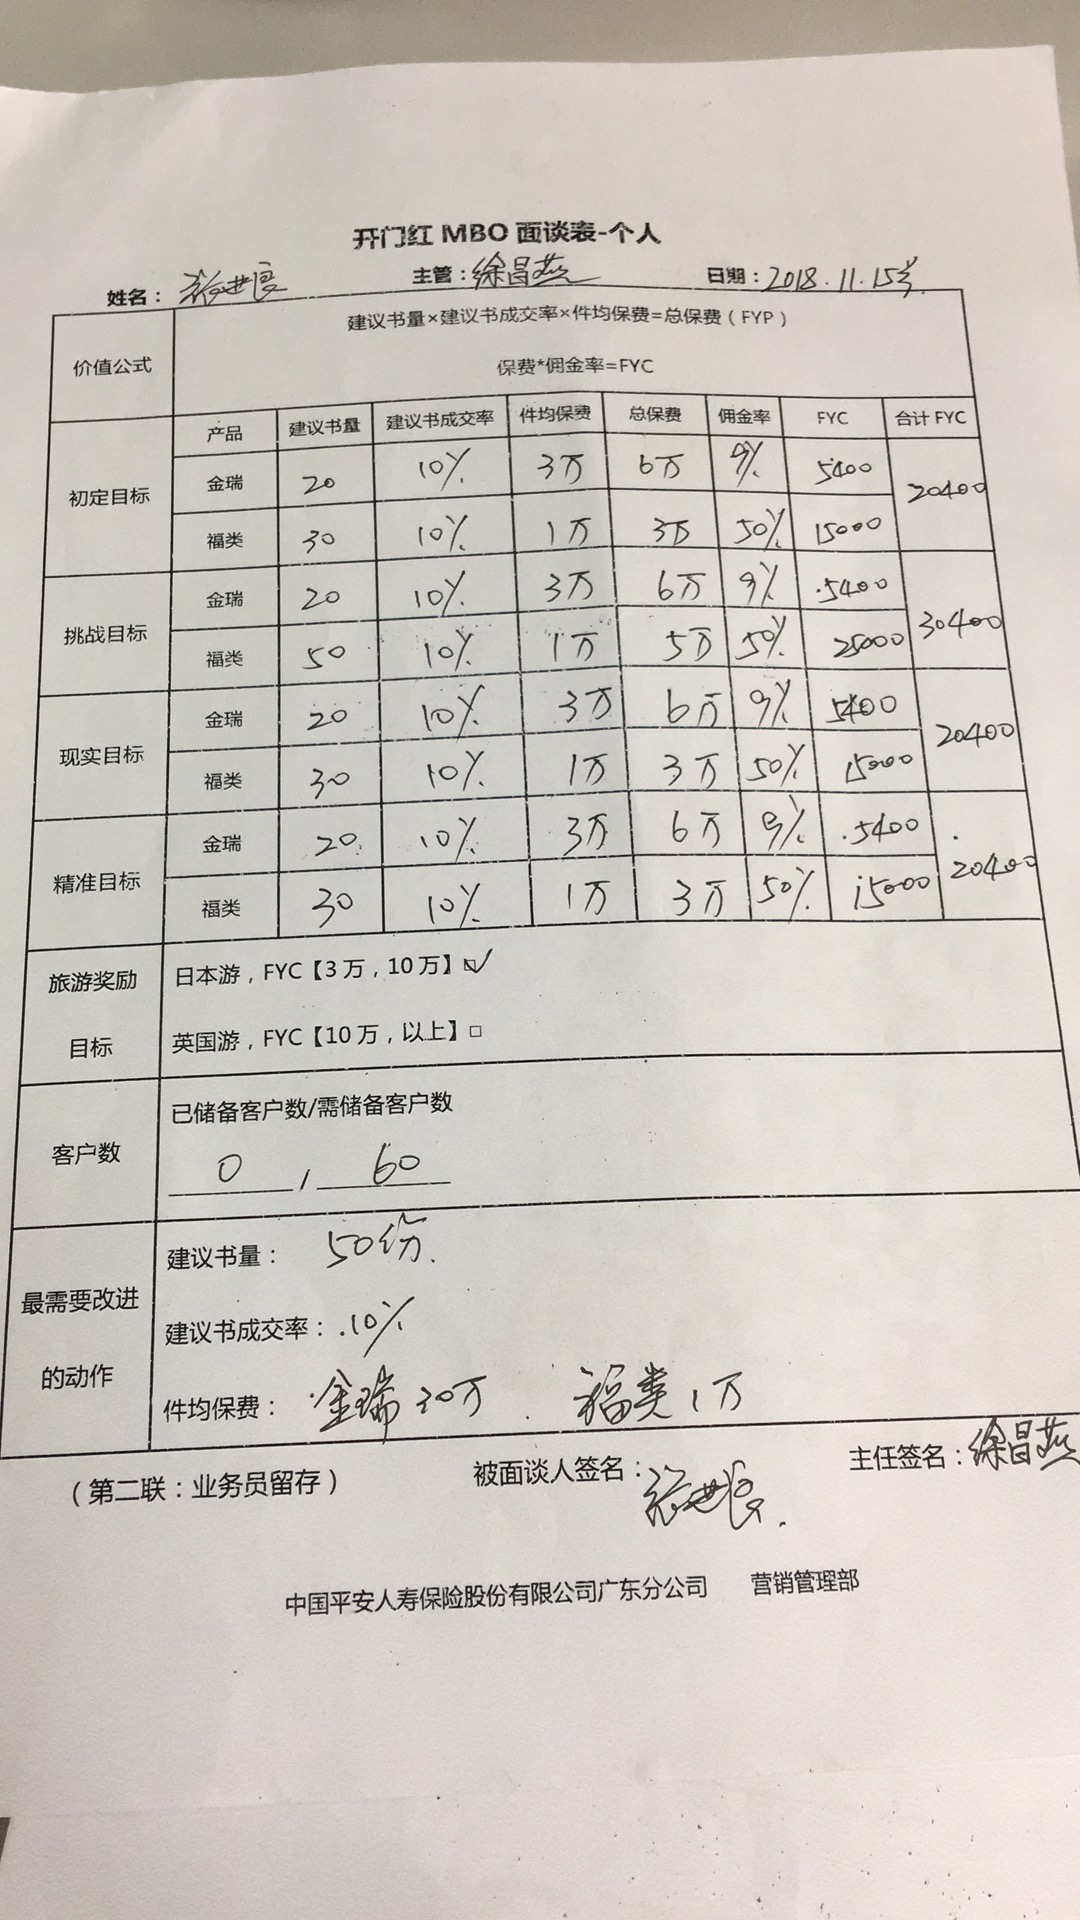 开门红 MBO 面谈表-个人
姓名： 主管：徐昌燕 日期：2018.11.15号
价值公式
建议书量×建议书成交率×件均保费=总保费（FYP）
保费*佣金率=FYC
产品 建议书量 建议书成交率 件均保费 总保费 佣金率 FYC 合计 FYC
初定目标
金瑞 20 10% 3万 6万 9% 5400 20400
福类 30 10% 1万 3万 50% 15000
挑战目标
金瑞 20 10% 3万 6万 9% .5400 30400
福类 50 10% 1万 5万 50% 25000
现实目标
金瑞 20 10% 3万 6万 9% 5400 20400
福类 30 10% 1万 3万 50% 15000
精准目标
金瑞 20 10% 3万 6万 9% .5400 20400
福类 30 10% 1万 3万 50% 15000
旅游奖励
目标
日本游，FYC【3 万，10 万】☑
英国游，FYC【10 万，以上】□
客户数
已储备客户数/需储备客户数
0 , 60
最需要改进
的动作
建议书量： 50份.
建议书成交率：.10%
件均保费： 金瑞 万 . 福类 1万
（第二联：业务员留存） 被面谈人签名： 主任签名：徐昌燕
中国平安人寿保险股份有限公司广东分公司 营销管理部